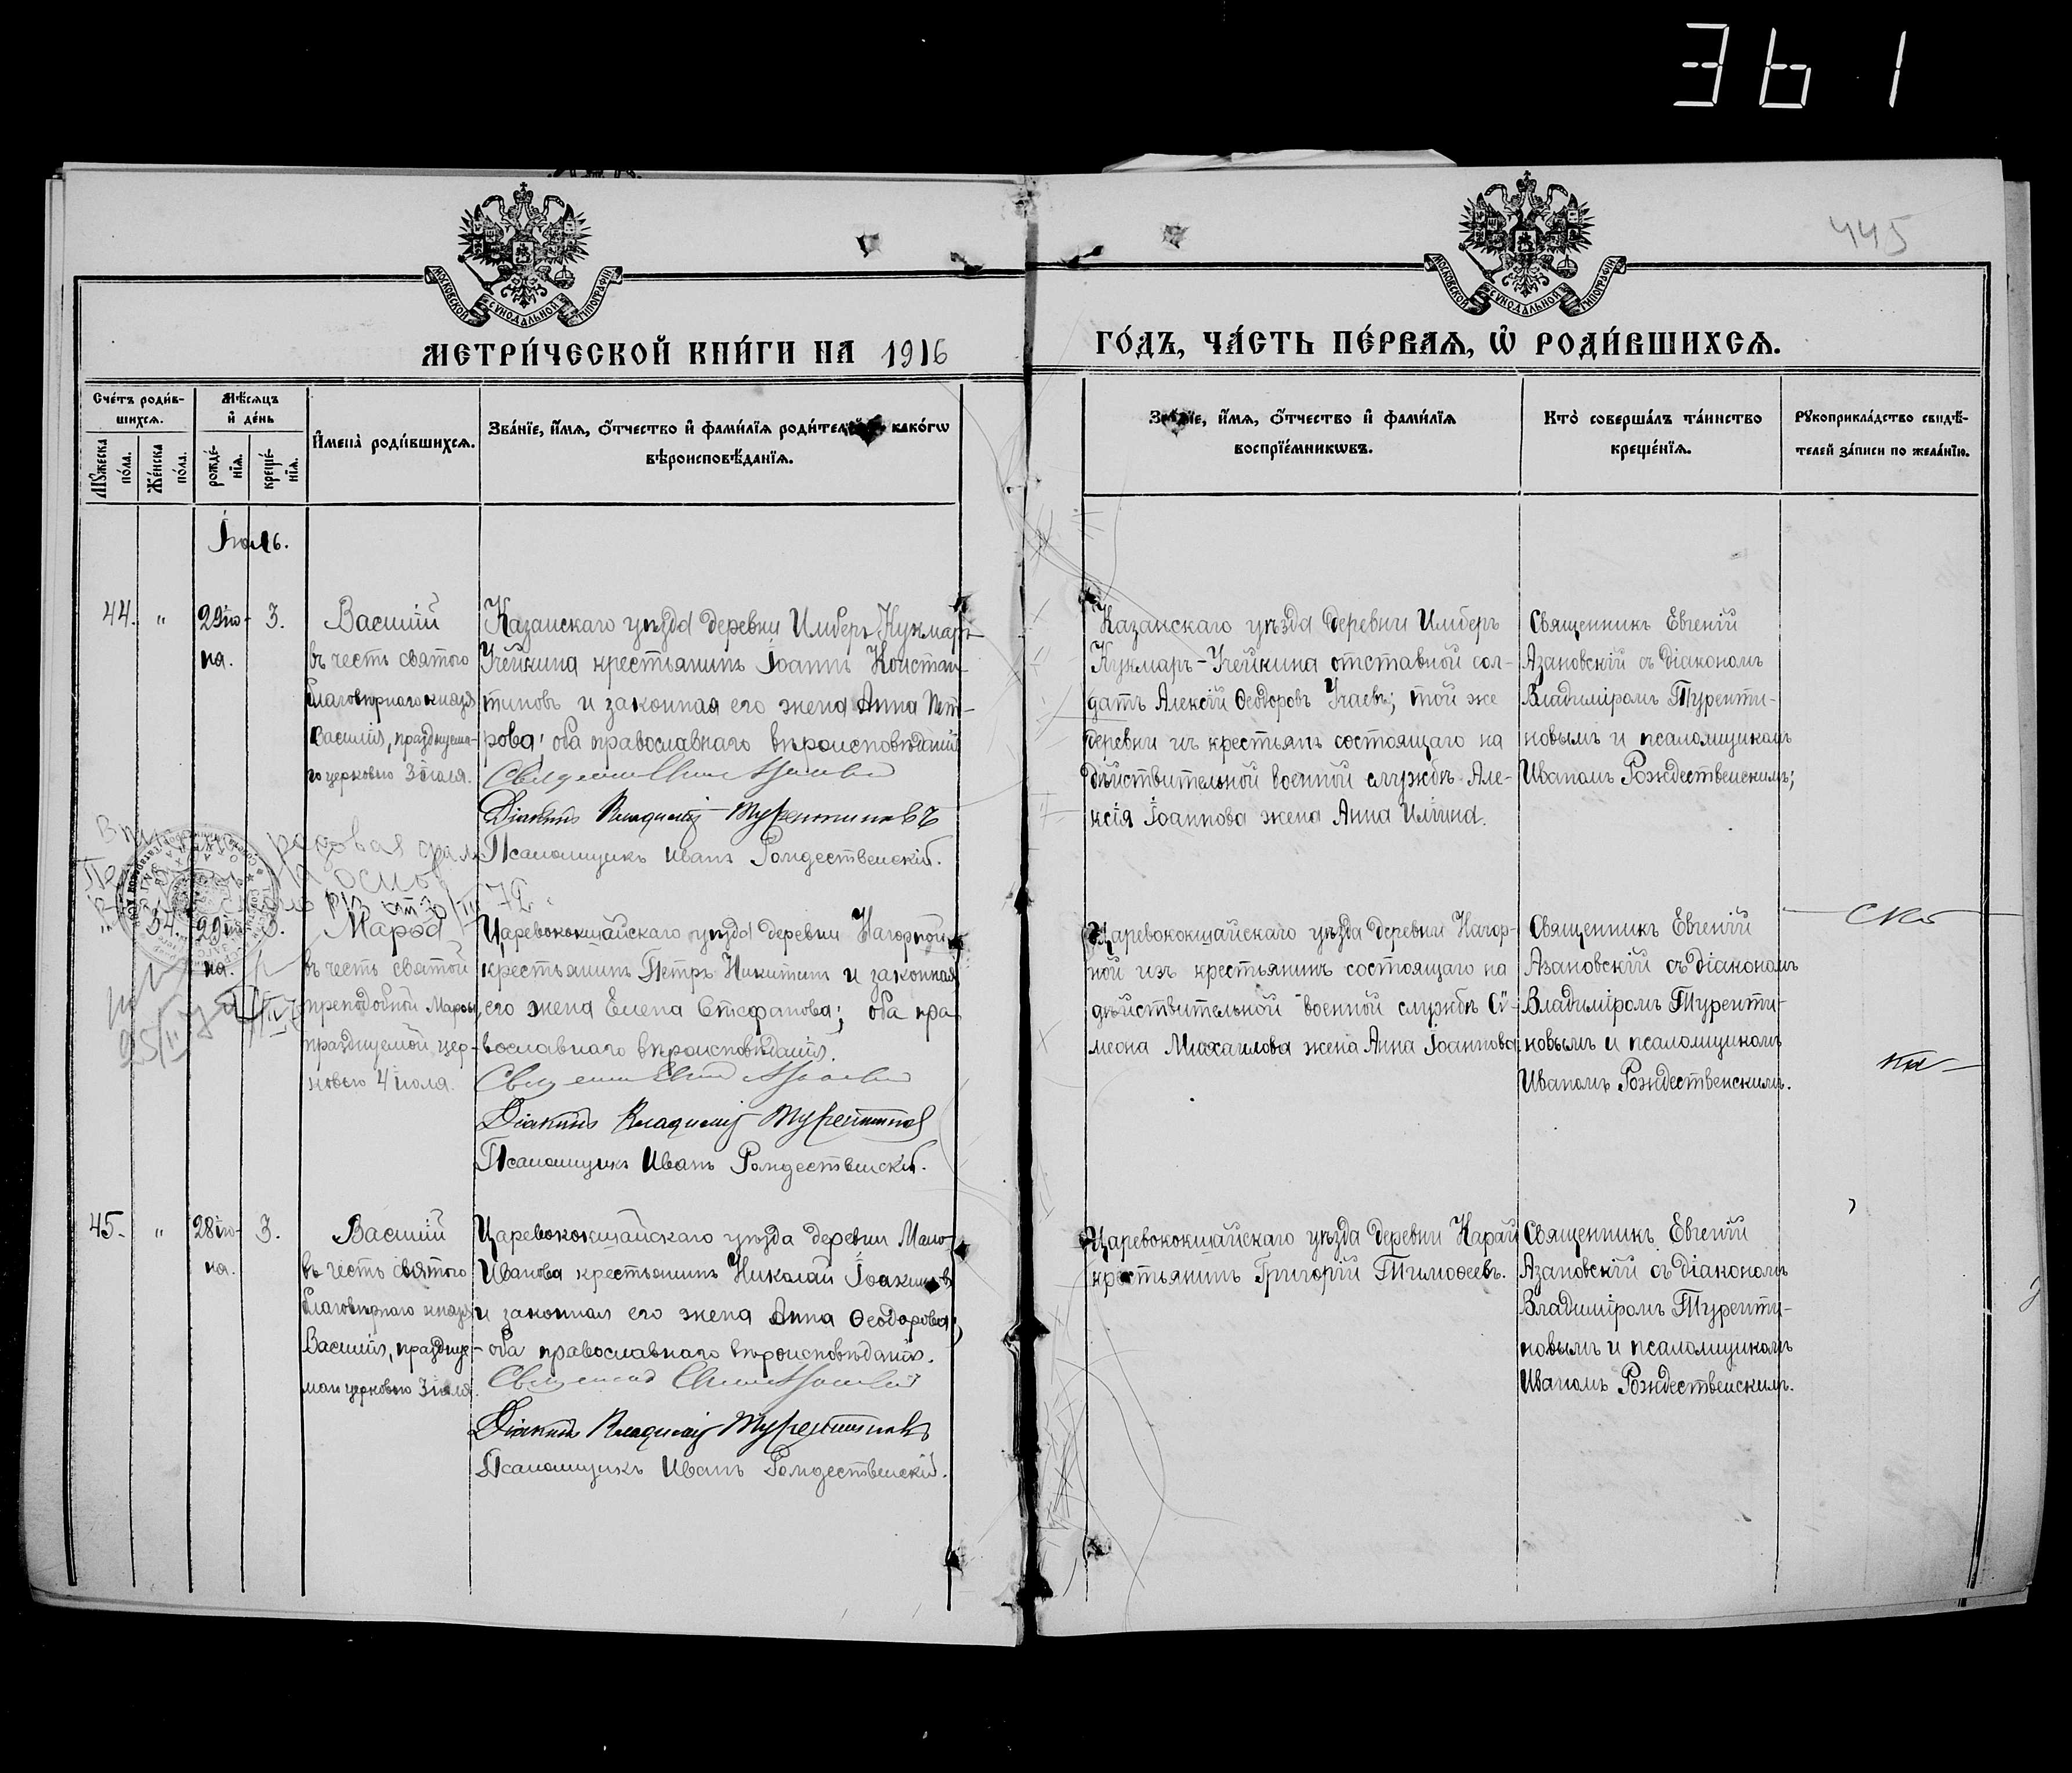 361
445
МОСКОВСКОЙ СѴНОДАЛЬНОЙ ТИПОГРАФІИ
МОСКОВСКОЙ СѴНОДАЛЬНОЙ ТИПОГРАФІИ
МЕТРИ́ЧЕСКОЙ КНИ́ГИ НА 1916
ГО́ДЪ, ЧА́СТЬ ПЕ́РВАѦ, Ѽ РОДИ́ВШИХСѦ.
Сче́тъ роди́в-
шихсѧ.
Мꙋ́жеска по́ла.
Же́нска по́ла.
Мѣ́сѧцъ
и҆ де́нь
рожде́-
нїѧ.
креще́-
нїѧ.
И҆мена̀ роди́вшихсѧ.
Зва́нїе, и҆́мѧ, ѻ҆́тчество и҆ фами́лїѧ роди́телей како́гѡ
вѣроисповѣ́данїѧ.
Зва́нїе, и҆́мѧ, ѻ҆́тчество и҆ фами́лїѧ
воспрїе́мникѡвъ.
Кто̀ соверша́лъ та́инство
креще́нїѧ.
Рꙋкоприкла́дство свидѣ́-
телей за́писи по жела́нїю.
Іюль.
44. " 29 ію- 3.
на.
Василій
въ честь святого
благовѣрнаго князя
Василія, празднуема-
го церковью 3 іюля.
Казанскаго уѣзда деревни Имберъ Кукмаръ
Учейкина крестьянинъ Іоаннъ Констан-
тиновъ и законная его жена Анна Пет-
рова; оба православнаго вѣроисповѣданія
Діаконъ Владимір Турентиновъ
Псаломщикъ Иванъ Рождественскій.
Казанскаго уѣзда деревни Имберъ
Кукмаръ-Учейкина отставной сол-
датъ Алексій Ѳеодоровъ Учаевъ; той же
деревни изъ крестьянъ состоящаго на
дѣйствительной военной службѣ Але-
ксія Іоаннова жена Анна Иліина.
Священникъ Евгеній
Азановскій съ діакономъ
Владиміромъ Туренти-
новымъ и псаломщикомъ
Иваномъ Рождественскимъ;
" 34. 29 ію- 3.
на.
Марѳа
въ честь святой
преподобной Марѳы,
празднуемой цер-
ковью 4 іюля.
Царевококшайскаго уѣзда деревни Нагорной
крестьянинъ Петръ Никитинъ и законная
его жена Елена Стефанова; оба пра-
вославнаго вѣроисповѣданія.
Діаконъ Владимір Турентинов
Псаломщикъ Иванъ Рождественскій.
Царевококшайскаго уѣзда деревни Нагор-
ной изъ крестьянинъ состоящаго на
дѣйствительной военной службѣ Си-
меона Михаилова жена Анна Іоаннова.
Священникъ Евгеній
Азановскій съ діакономъ
Владиміромъ Туренти-
новымъ и псаломщикомъ
Иваномъ Рождественскимъ.
45. " 28 ію- 3.
на.
Василій
въ честь святого
благовѣрнаго князя
Василія, праздну-
маго церковью 3 іюля.
Царевококшайскаго уѣзда деревни Мало-
Иванова крестьянинъ Николай Іоакимовъ
и законная его жена Анна Ѳеодорова;
оба православнаго вѣроисповѣданія.
Діаконъ Владимір Турентиновъ
Псаломщикъ Иванъ Рождественскій.
Царевококшайскаго уѣзда деревни Карай
крестьянинъ Григорій Тимоѳеевъ.
Священникъ Евгеній
Азановскій съ діакономъ
Владиміромъ Туренти-
новымъ и псаломщикомъ
Иваномъ Рождественскимъ.